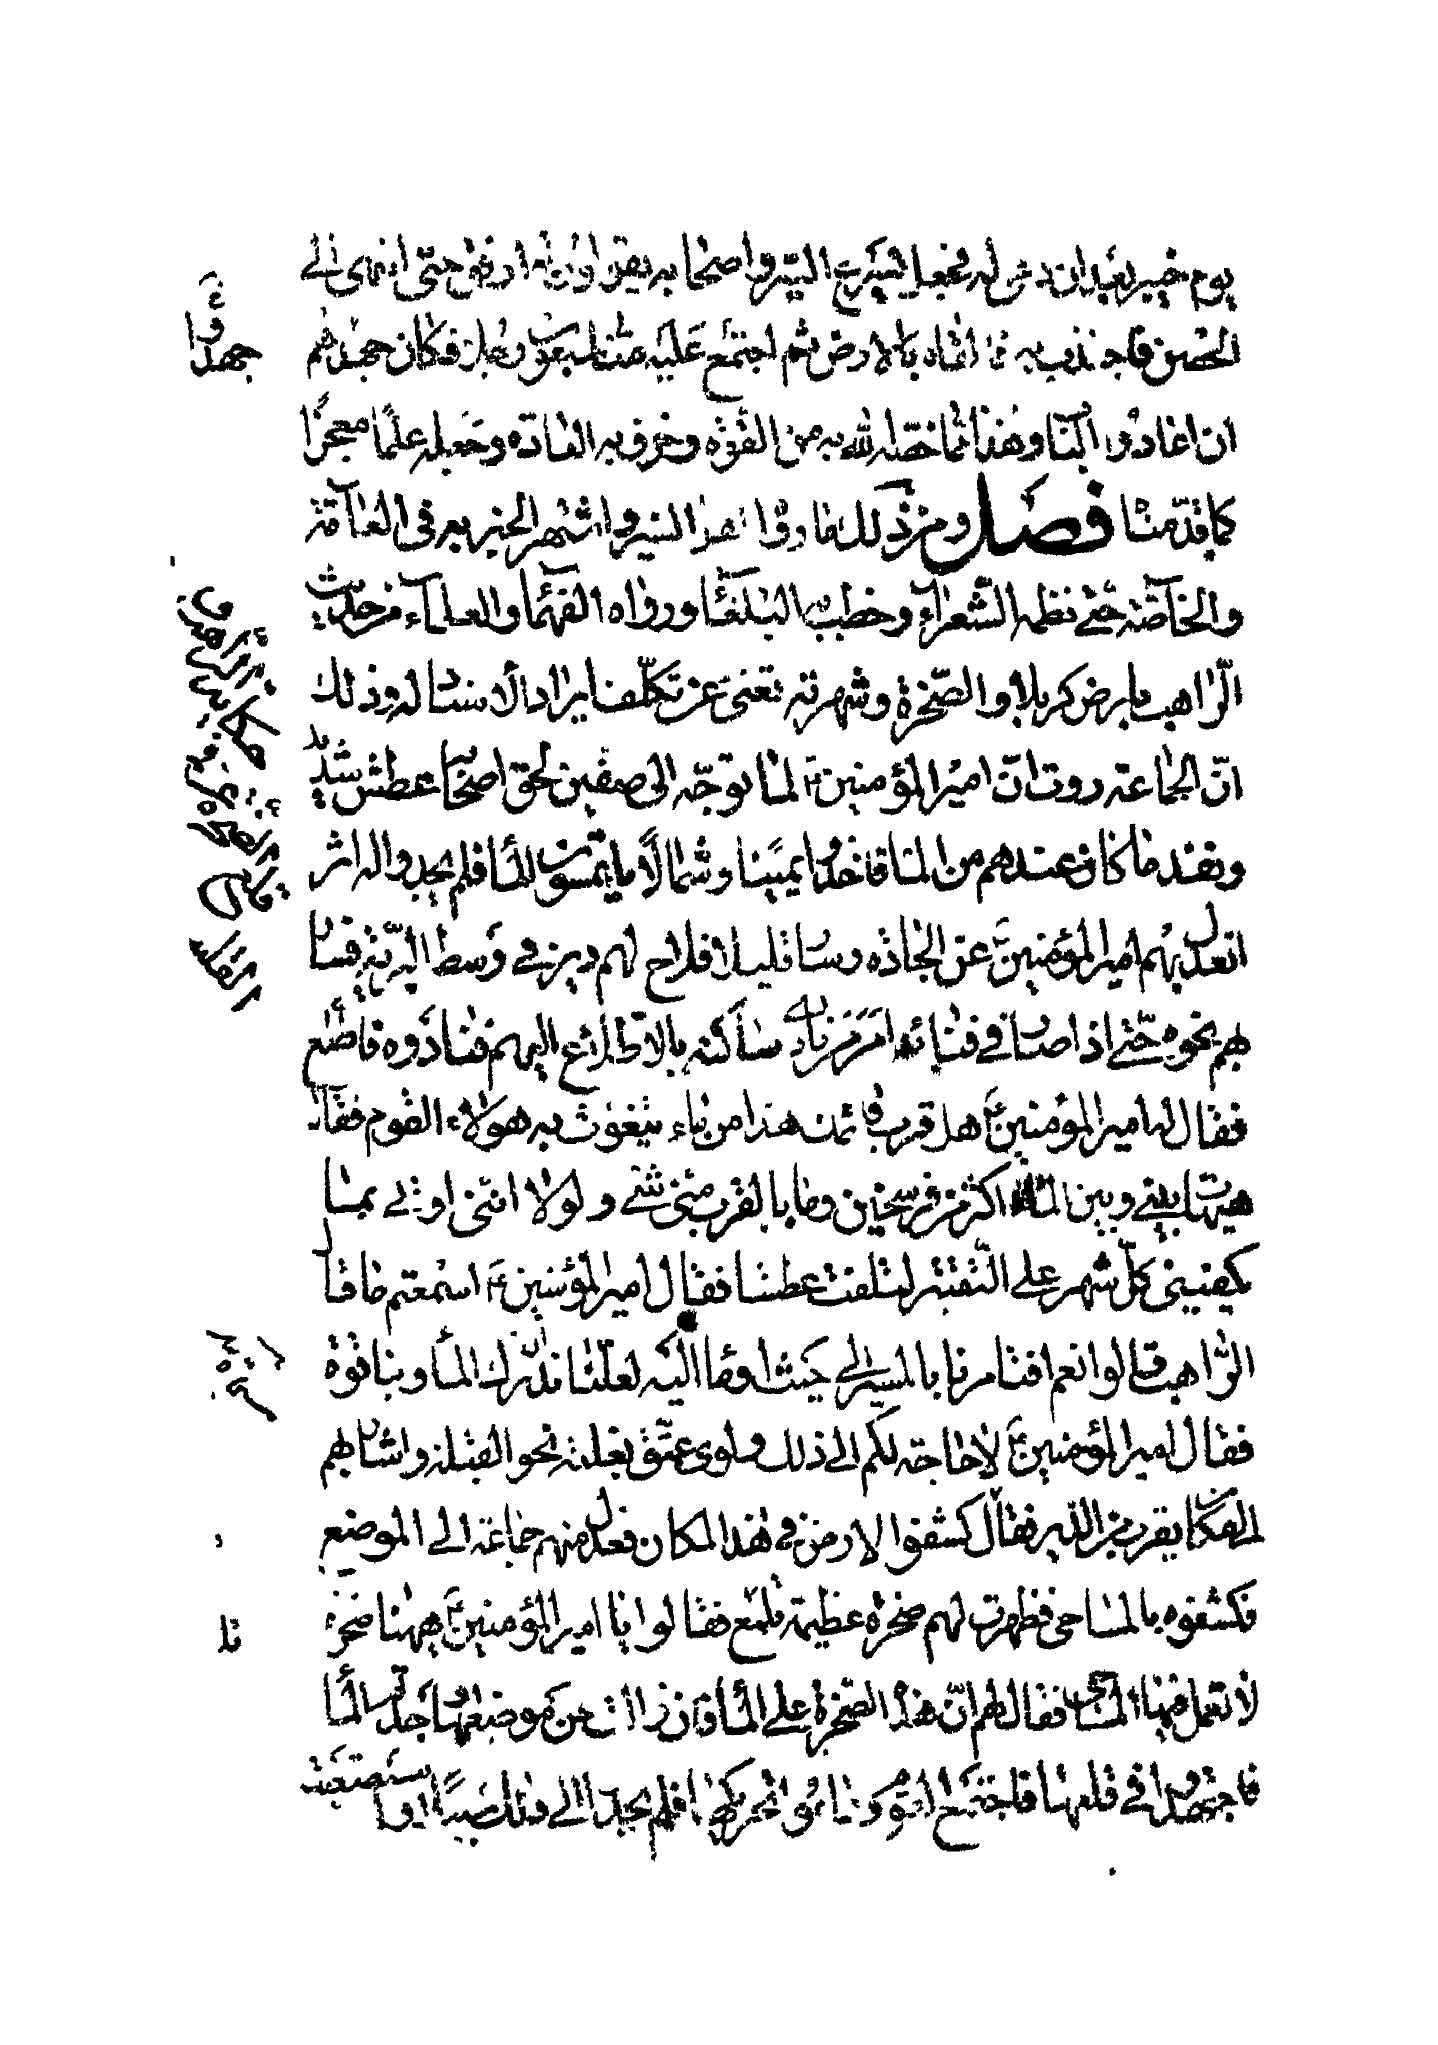 يوم خيبر بعد ان دعى له فجعل يسرع السير واصحابه يقولون له ارفق حتى انتهى الى
الحصن فاجتذب بابه فالقاه بالارض ثم اجتمع عليه منا سبعون رجلا فكان جهدهم
ان اعادوا الباب وهذا مما خصه الله به من القوة وخرق به العادة وجعله علما معجزا
كما قدمنا فصل ومن ذلك ما رواه اهل السير واشتهر الخبر به في العامة
والخاصة حتى نظمه الشعراء وخطب به البلغاء ورواه الفقهاء والعلماء من حديث
الراهب بارض كربلا والصخرة وشهرته تغنى عن تكلف ايراد الاسناد له وذلك
ان الجماعة روت ان امير المؤمنين ع لما توجه الى صفين لحق اصحابه عطش شديد
ونفد ما كان عندهم من الماء فاخذوا يمينا وشمالا يلتمسون الماء فلم يجدوا له اثر
فعدل بهم امير المؤمنين ع عن الجادة وسار قليلا فلاح لهم دير في وسط البرية فسار
بهم نحوه حتى اذا صار في فنائه امر من نادى ساكنه بالاطلاع اليهم فنادوه فاطلع
فقال له امير المؤمنين ع هل قرب قائمك هذا من ماء يتغوث به هولاء القوم فقال
هيهات بيني وبين الماء اكثر من فرسخين وما بالقرب مني شئ ولولا انني اوتى بماء
يكفيني كل شهر على التقتير لتلفت عطشا فقال امير المؤمنين ع اسمعتم ما قال
الراهب قالوا نعم افتامرنا بالمسير الى حيث اوما اليه لعلنا ندرك الماء وبنا قوة
فقال امير المؤمنين ع لا حاجة لكم الى ذلك ولوى عنق بغلته نحو القبلة واشار بهم
لمكان يقرب من الدير فقال اكشفوا الارض في هذا المكان فعدل منهم جماعة الى الموضع
فكشفوه بالمساحي فظهرت لهم صخرة عظيمة تلمع فقالوا يا امير المؤمنين ع ههنا صخرة
لا تعمل فيها المساحي فقال لهم ان هذه الصخرة على الماء فان زالت عن موضعها وجدتم الماء
فاجتهدوا في قلعها فاجتمع القوم وراموا تحريكها فلم يجدوا الى ذلك سبيلا واستصعبت